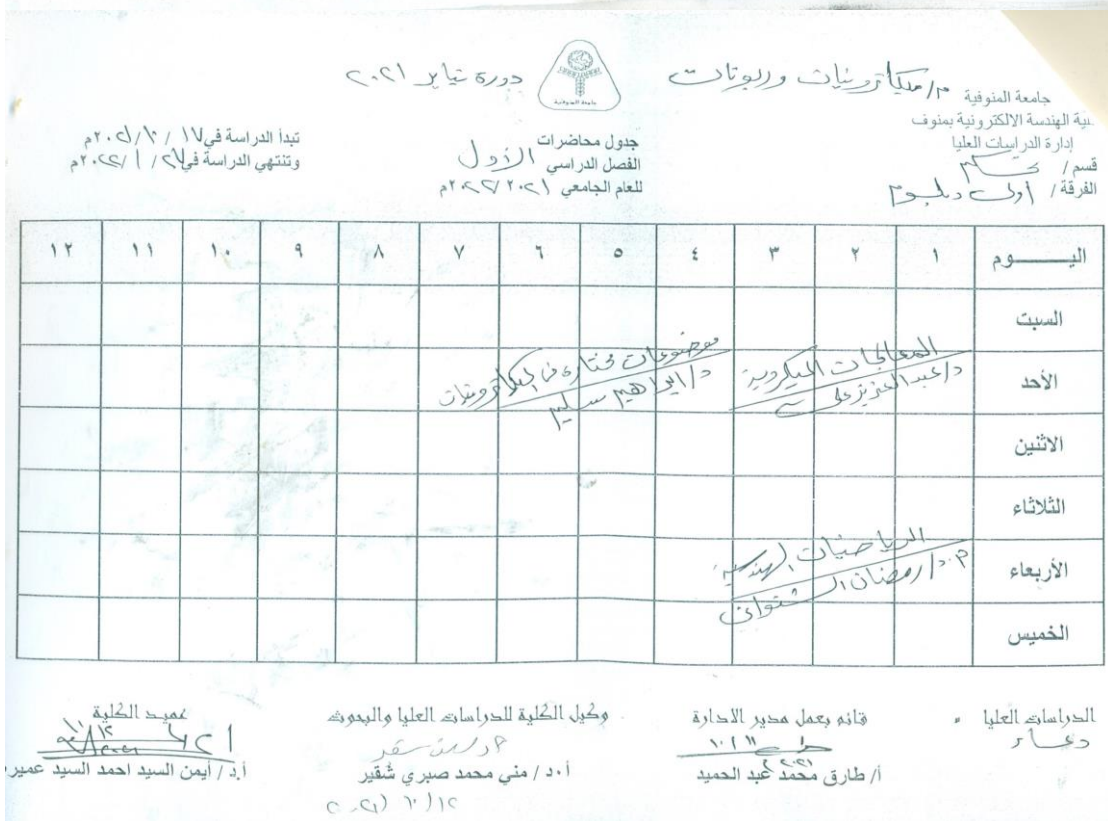 م/ميكاترونيات وربوتات
دورة يناير ٢٠٢١
جامعة المنوفية
جامعة المنوفية
ـية الهندسة الالكترونية بمنوف
إدارة الدراسات العليا
قسم/ تحكم
الفرقة/ أولى دبلوم
جدول محاضرات
الفصل الدراسي الأول
للعام الجامعي ٢٠٢١/ ٢٠٢٢م
تبدأ الدراسة في ١٧/ ١٠/ ٢٠٢١م
وتنتهي الدراسة في ٢٧/ ١/ ٢٠٢٢م
اليـــــوم ١ ٢ ٣ ٤ ٥ ٦ ٧ ٨ ٩ ١٠ ١١ ١٢
السبت
الأحد
المعالجات الميكروية
د/عبد العزيز على
موضوعات مختارة في الميكاترونيات
د/ابراهيم سليم
الاثنين
الثلاثاء
الأربعاء
الرياضيات الهندسية
د/رمضان الشنواني
الخميس
الدراسات العليا
دعاء
قائم بعمل مدير الادارة
١٠/١١
٢٠٢١
أ/ طارق محمد عبد الحميد
وكيل الكلية للدراسات العليا والبحوث
أ.د / مني محمد صبري شقير
٢٠٢١/١٠/١٢
عميد الكلية
أ.د / أيمن السيد احمد السيد عمير